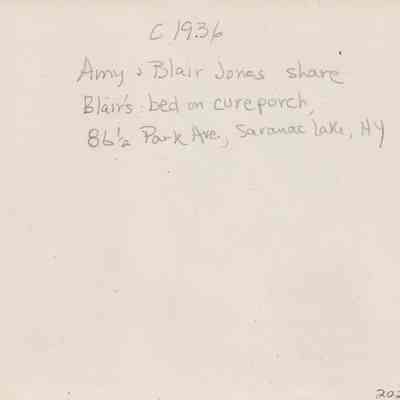 C 1936
Amy & Blair Jones share
Blair's bed on cureporch,
86½ Park Ave., Saranac Lake, NY
202